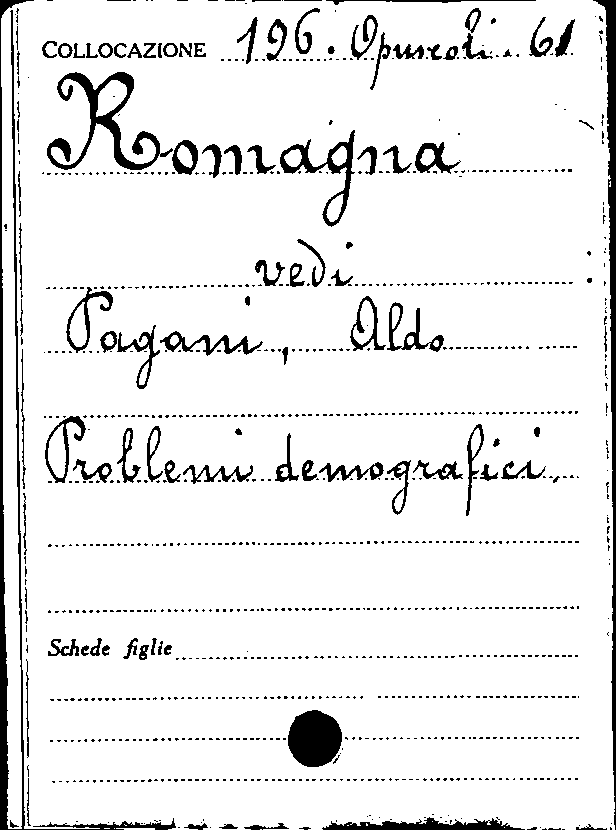 COLLOCAZIONE 196. Opuscoli. 61
Romagna
vedi
Pagani, Aldo
Problemi demografici.
Schede figlie